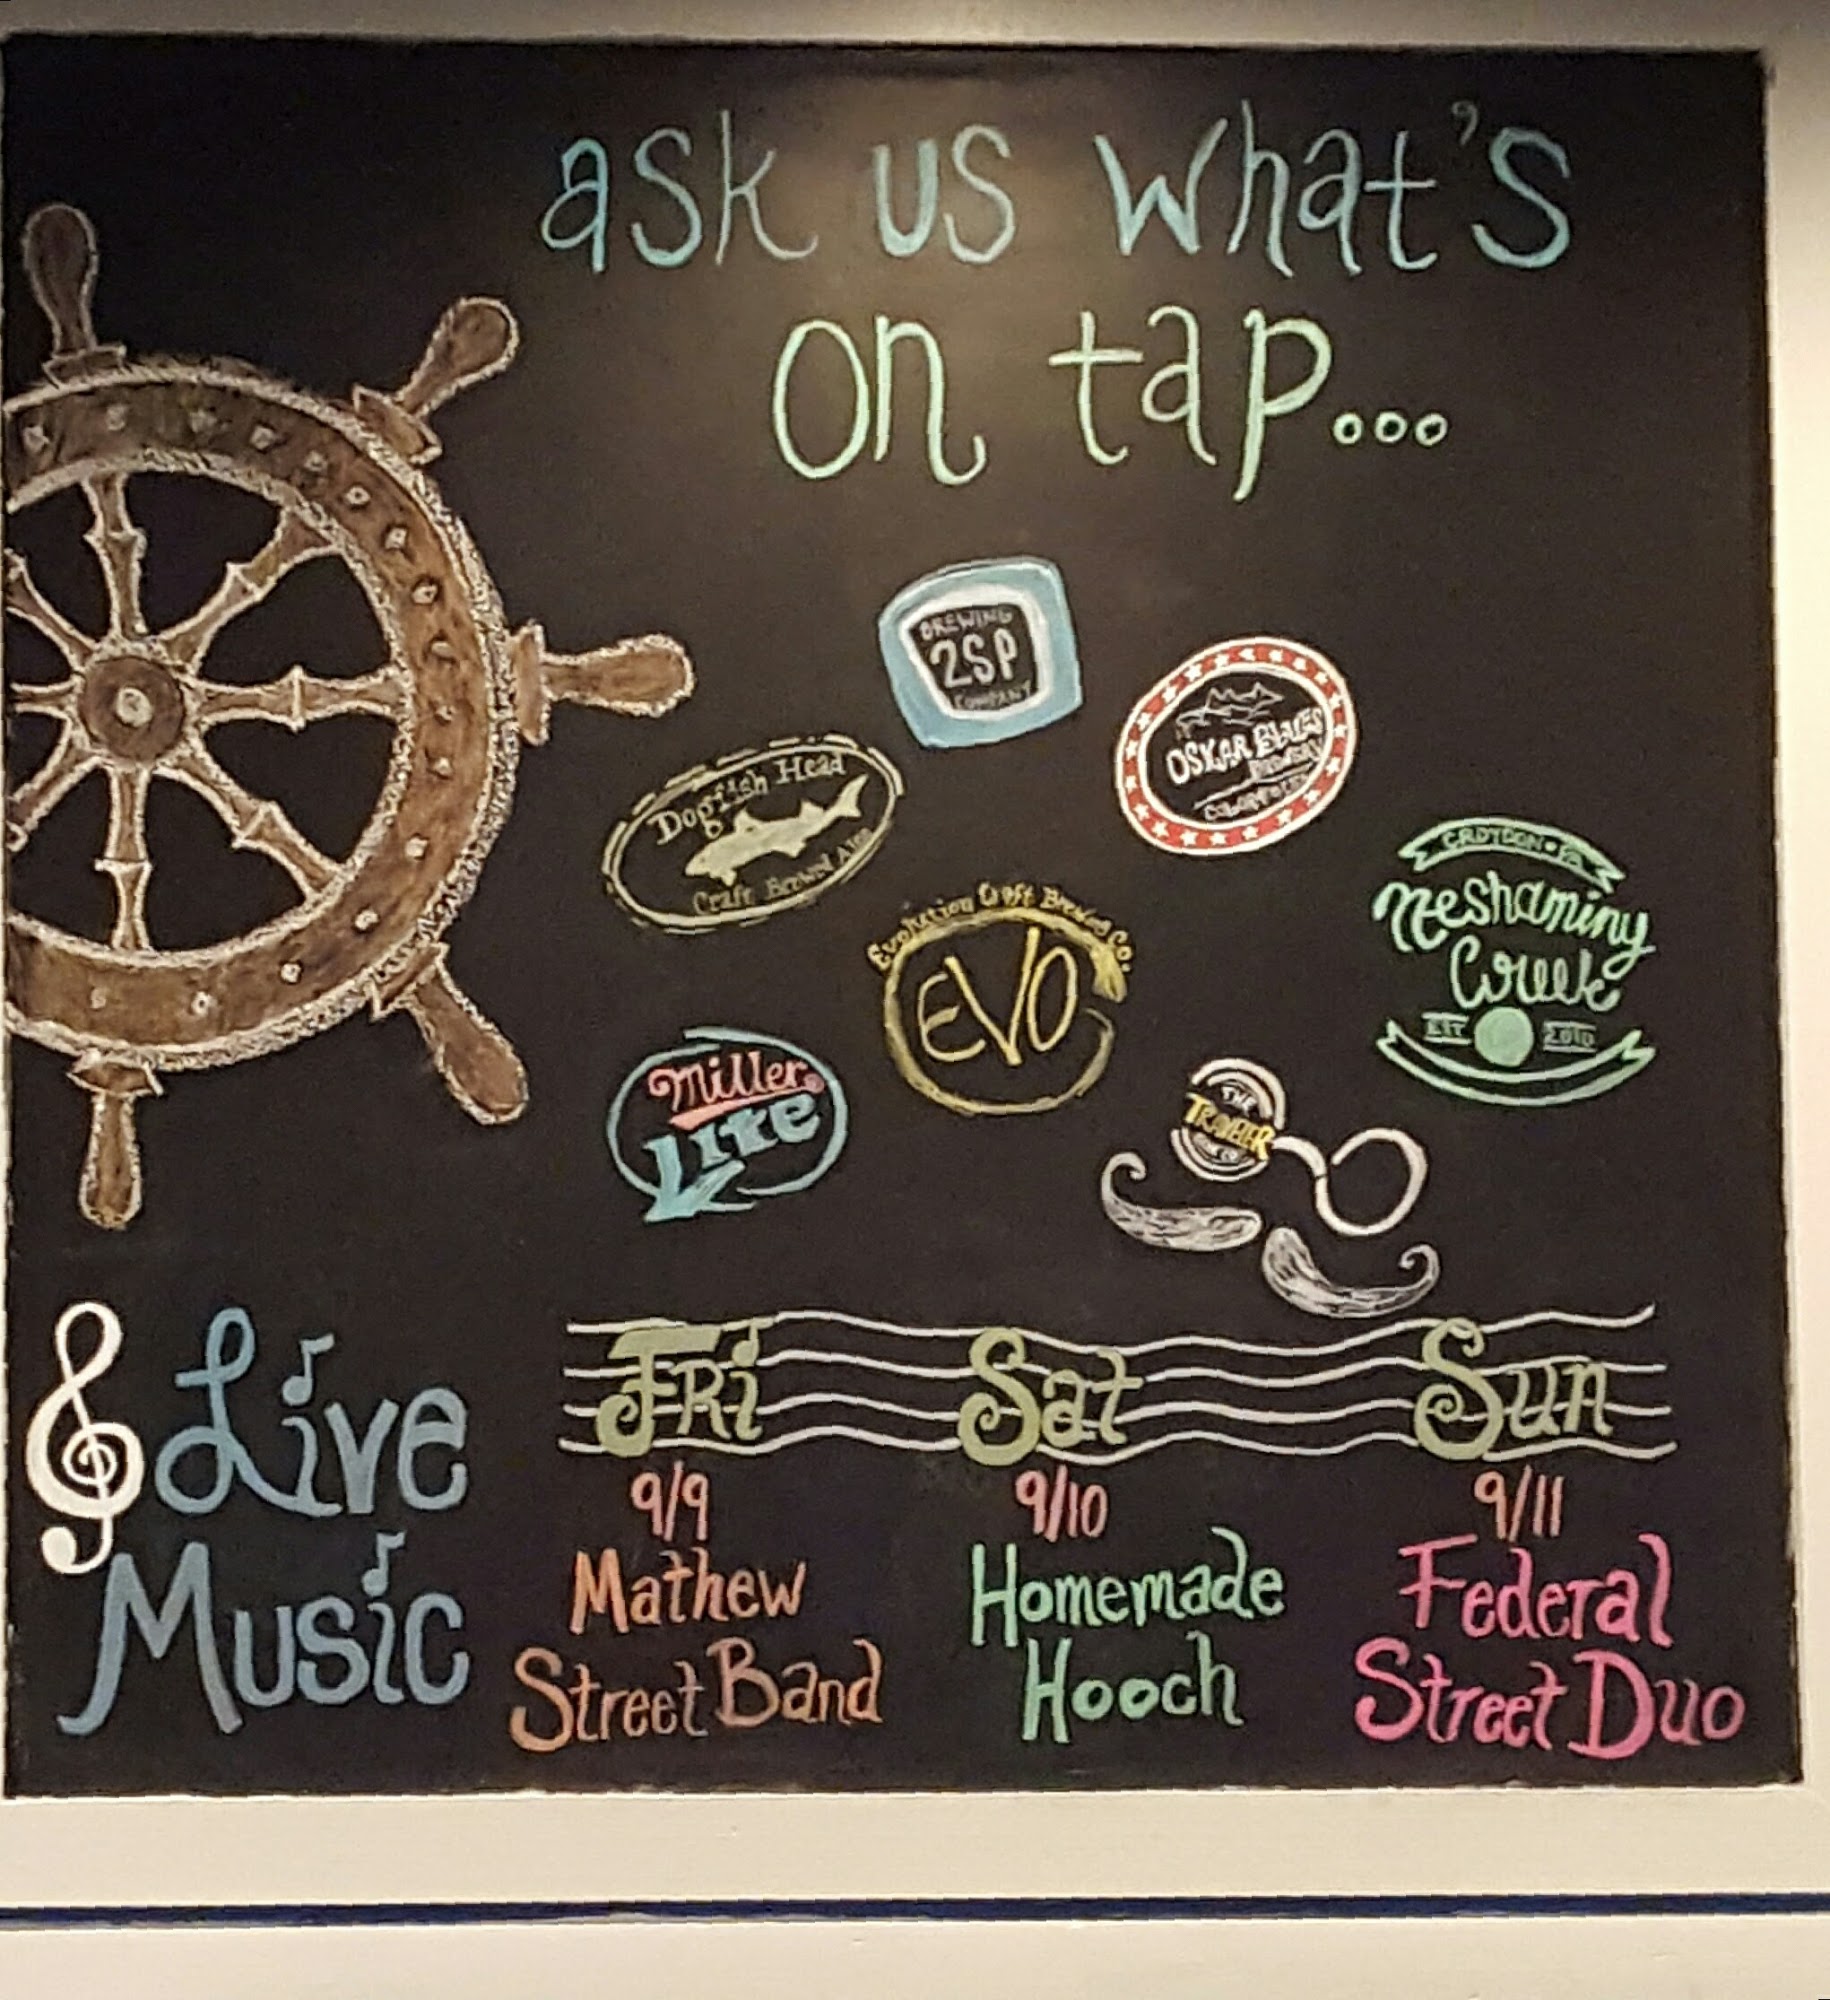 ask us what's
on tap...
BREWING
2SP
COMPANY
OSKAR BLUES
BREWERY
Dogfish Head
Craft Brewed Ales
CROYDON • PA
Neshaminy
Creek
EST 2010
Evolution Craft Brewing Co.
EVO
Miller
Lite
THE
TRAVELER
Live
Music
Fri Sat Sun
9/9 9/10 9/11
Mathew Homemade Federal
Street Band Hooch Street Duo